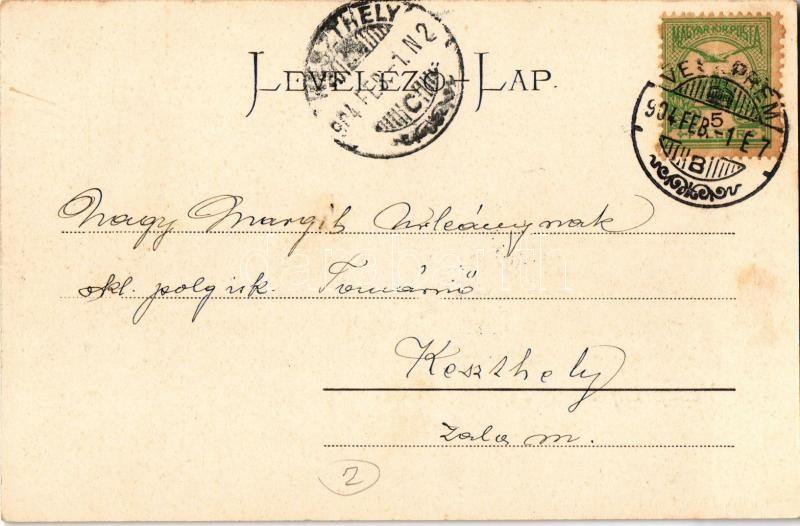 KESZTHELY
904 FEB. -1. N 2
C
MAGYAR KIR. POSTA
VESZPRÉM
904 FEB. -1 E 7
5
B
LEVELEZŐ-LAP.
Nagy Margit Urleánynak
okl. polg isk. Tanárnő
Keszthely
Zala m.
2
darabanth